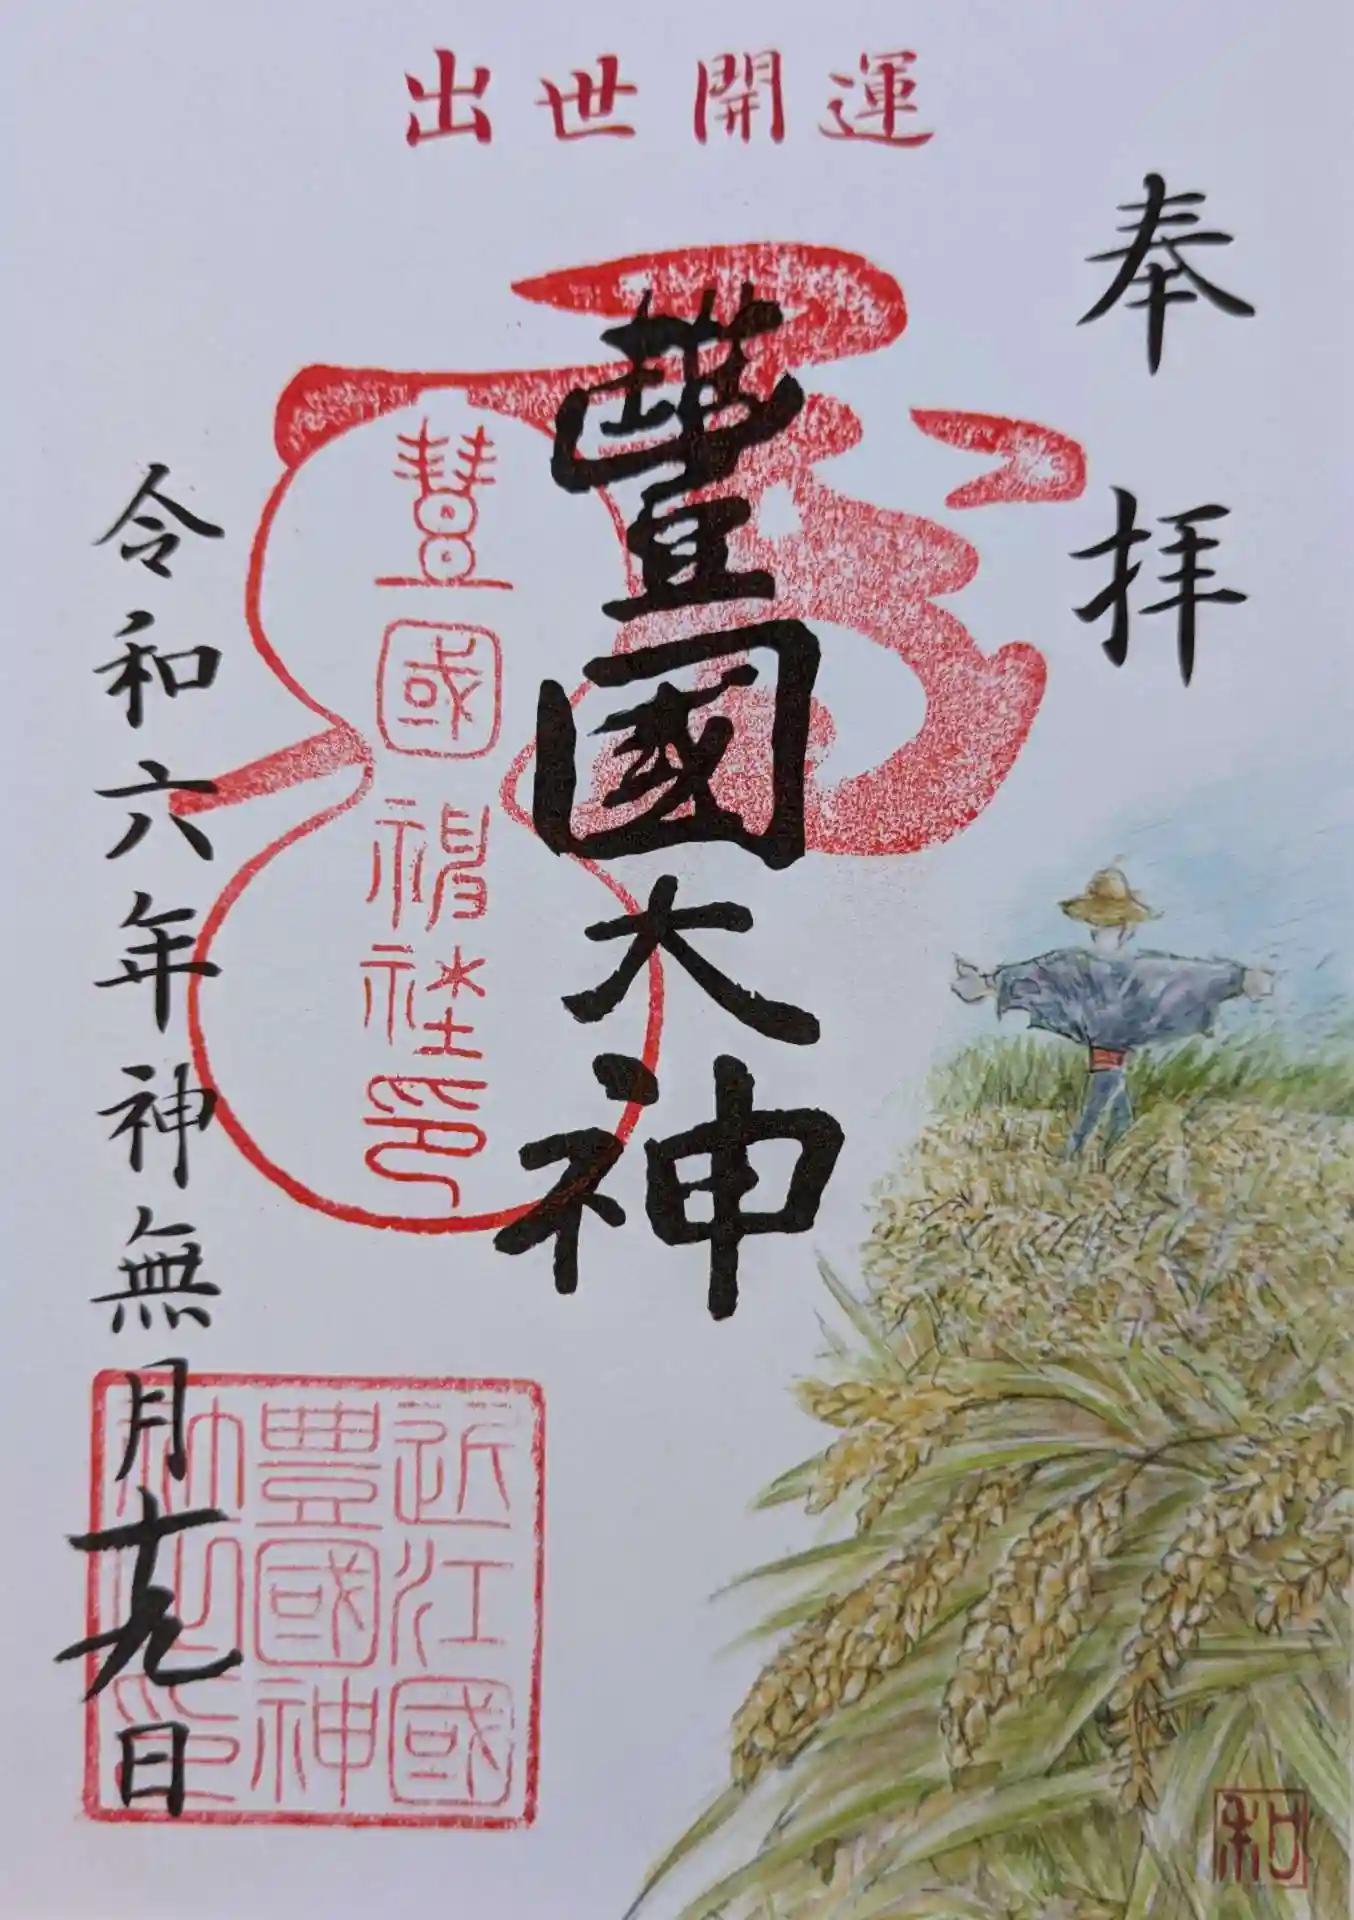 出世開運
奉拝
豊國大神
豊國神社印
令和六年神無月十九日
近江國
豊國神
社之印
和